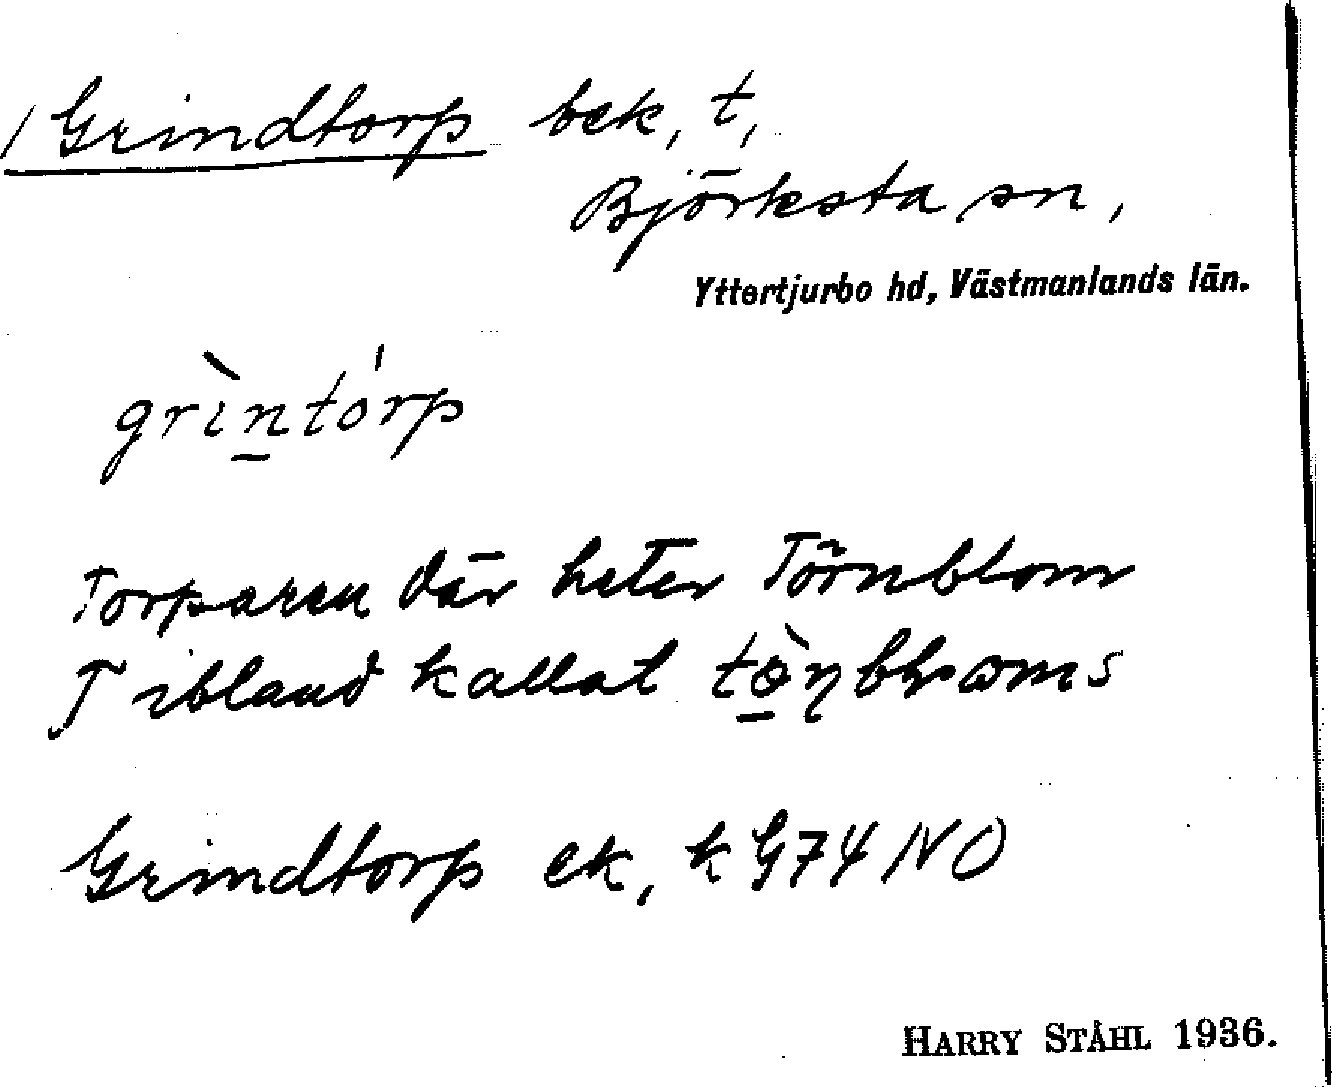 / Grindtorp bek, t,
Björksta sn,
Yttertjurbo hd, Västmanlands län.
grìntórp
Torparen där heter Törnblom
T ibland kallat
Grindtorp ek, k G74 NO
HARRY STÅHL 1936.